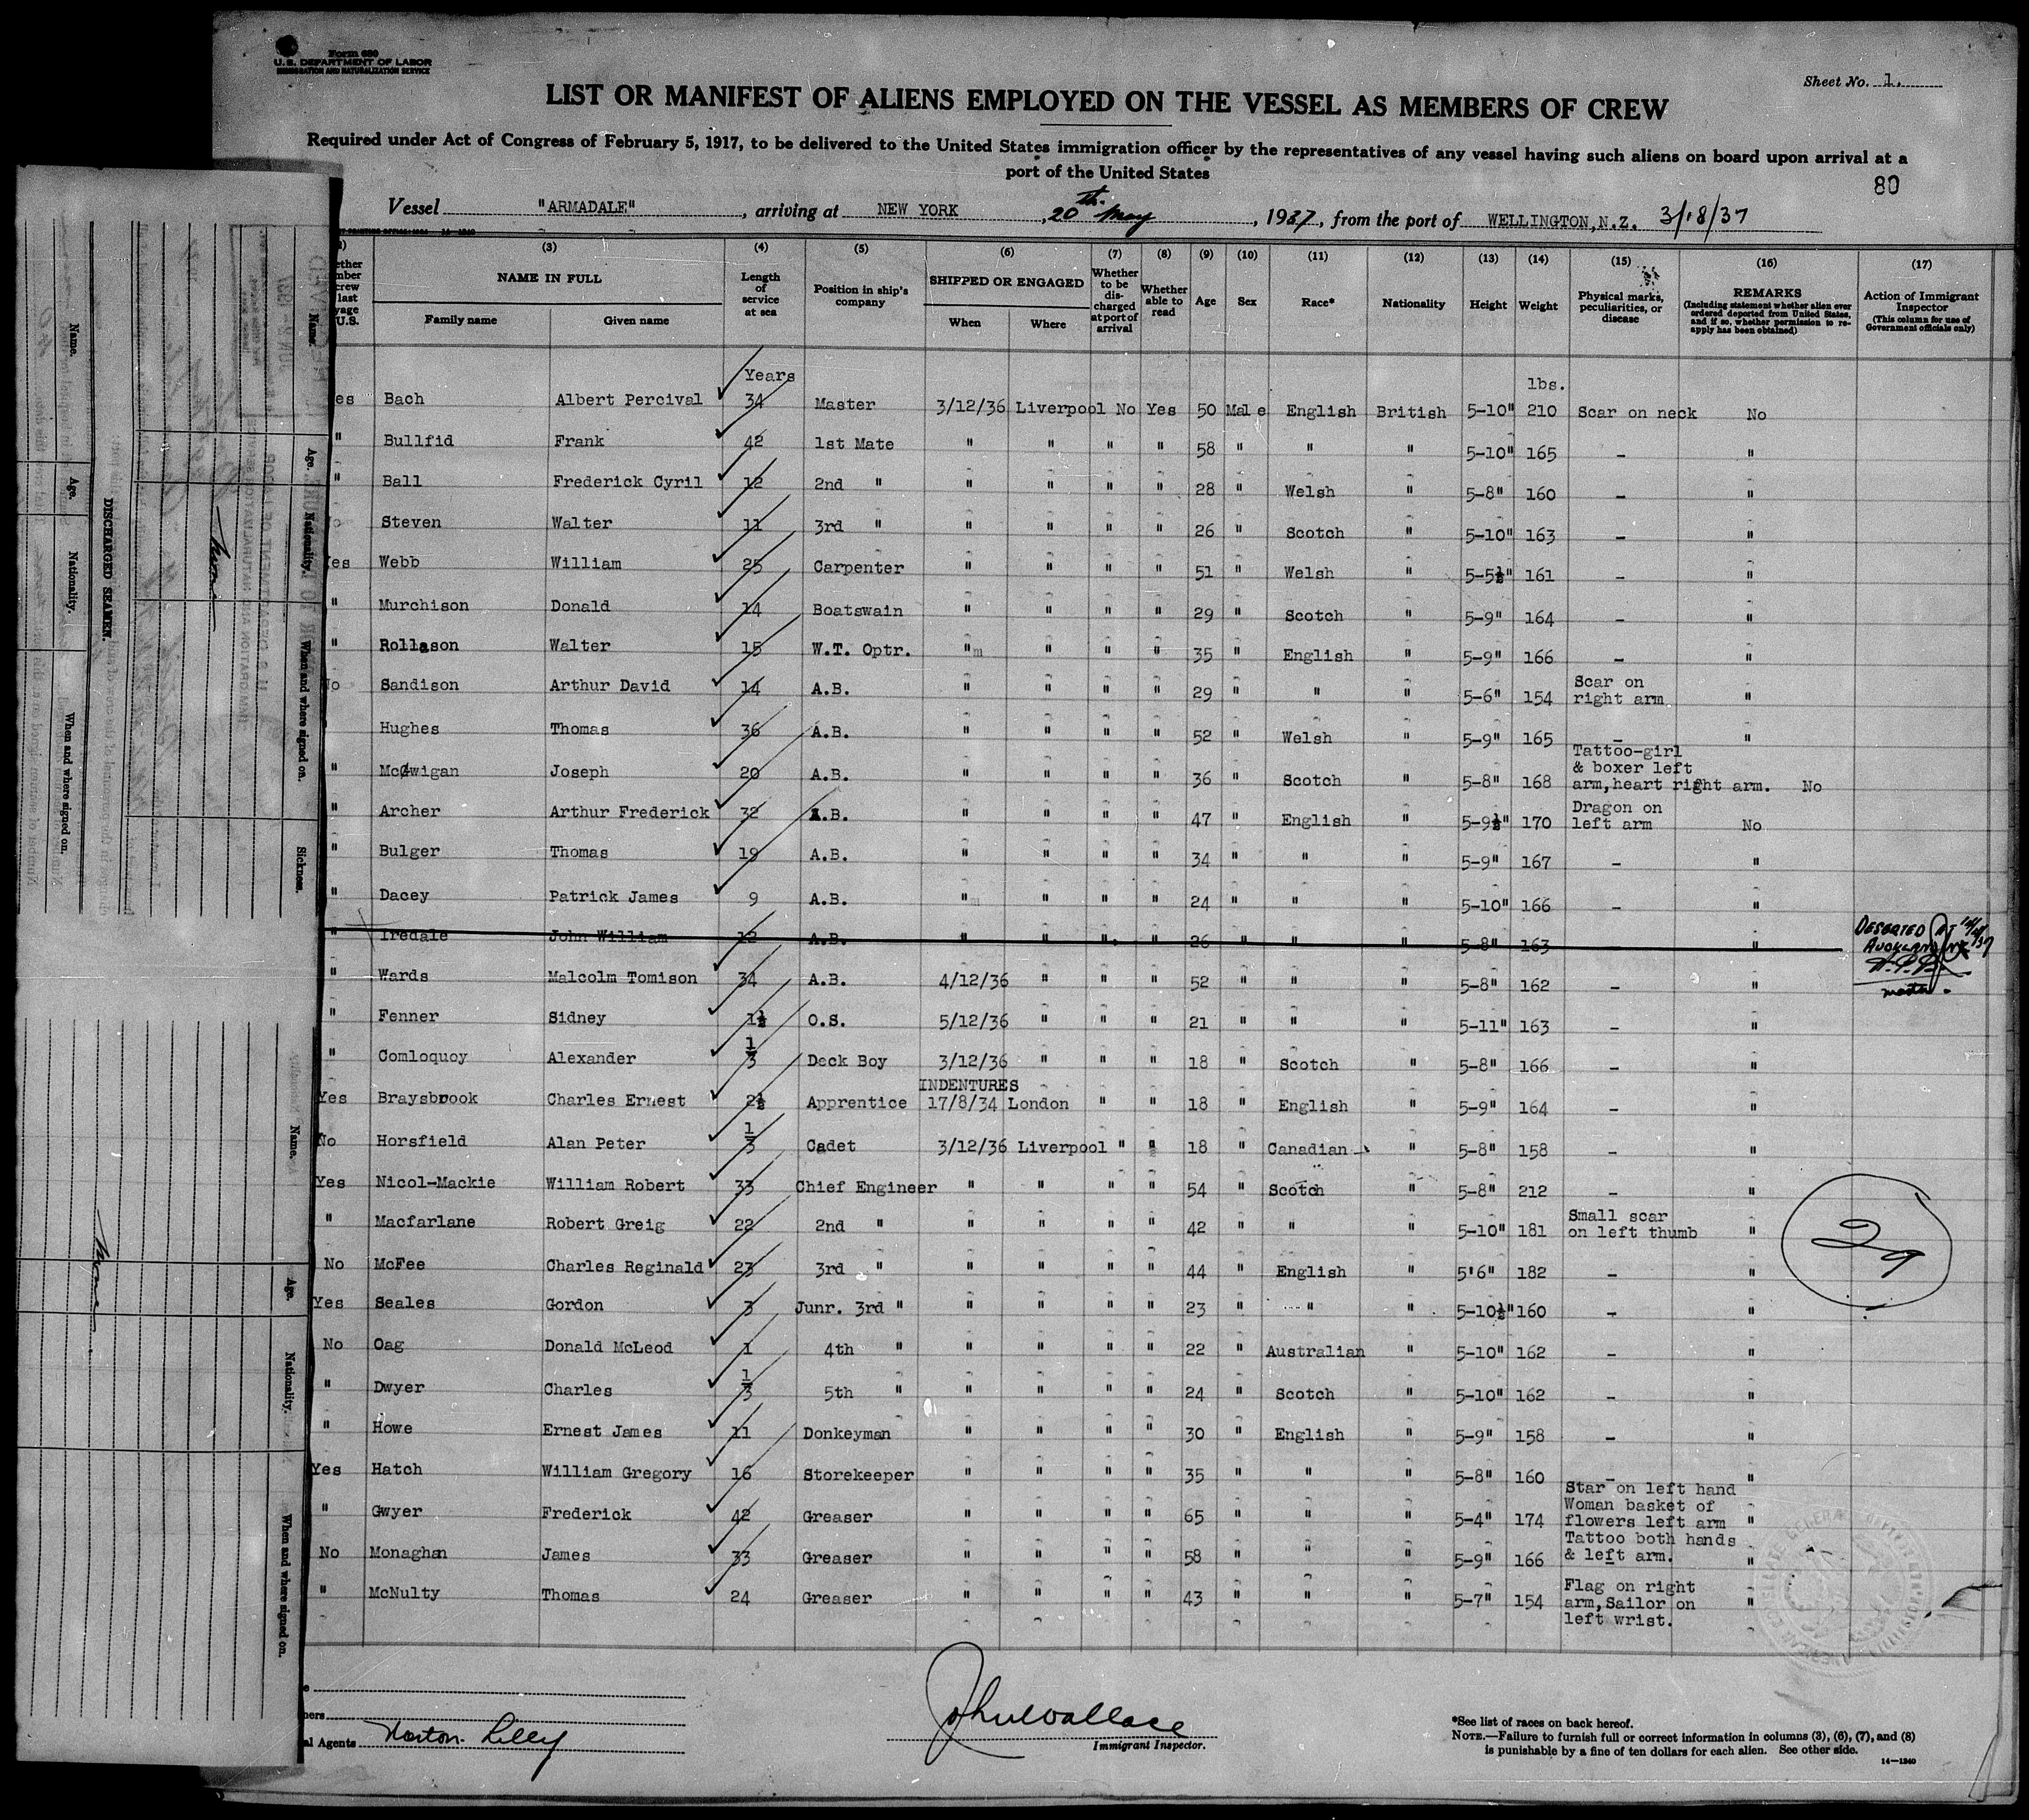 Form 680
U. S. DEPARTMENT OF LABOR
IMMIGRATION AND NATURALIZATION SERVICE
Sheet No. 1.
LIST OR MANIFEST OF ALIENS EMPLOYED ON THE VESSEL AS MEMBERS OF CREW
Required under Act of Congress of February 5, 1917, to be delivered to the United States immigration officer by the representatives of any vessel having such aliens on board upon arrival at a
port of the United States
80
Vessel "ARMADALE", arriving at NEW YORK, 20th May, 1937, from the port of WELLINGTON, N.Z.
(3) (4) (5) (6) (7) (8) (9) (10) (11) (12) (13) (14) (15) (16) (17)
NAME IN FULL Length of service at sea Position in ship's company SHIPPED OR ENGAGED Whether to be discharged at port of arrival Whether able to read Age Sex Race* Nationality Height Weight Physical marks, peculiarities, or disease REMARKS (Including statement whether alien ever ordered deported from United States, and if so, whether permission to re-apply has been obtained) Action of Immigrant Inspector (This column for use of Government officials only)
Family name Given name When Where
Years lbs.
es Bach Albert Percival 34 Master 3/12/36 Liverpool No Yes 50 Male English British 5-10" 210 Scar on neck No
" Bullfid Frank 42 1st Mate " " " " 58 " " " 5-10" 165 - "
" Ball Frederick Cyril 12 2nd " " " " " 28 " Welsh " 5-8" 160 - "
o Steven Walter 11 3rd " " " " " 26 " Scotch " 5-10" 163 - "
es Webb William 25 Carpenter " " " " 51 " Welsh " 5-5½" 161 - "
" Murchison Donald 14 Boatswain " " " " 29 " Scotch " 5-9" 164 - "
" Rollason Walter 15 W.T. Optr. " " " " 35 " English " 5-9" 166 - "
No Sandison Arthur David 14 A.B. " " " " 29 " " " 5-6" 154 Scar on right arm "
Hughes Thomas 36 A.B. " " " " 52 " Welsh " 5-9" 165 - "
" McGwigan Joseph 20 A.B. " " " " 36 " Scotch " 5-8" 168 Tattoo-girl & boxer left arm, heart right arm. No
" Archer Arthur Frederick 32 A.B. " " " " 47 " English " 5-9½" 170 Dragon on left arm No
" Bulger Thomas 19 A.B. " " " " 34 " " " 5-9" 167 - "
" Dacey Patrick James 9 A.B. " " " " 24 " " " 5-10" 166 - "
" Iredale John William 12 A.B. " " " " 26 " " " 5-8" 163 " DESERTED AT AUCKLAND NZ master.
" Wards Malcolm Tomison 34 A.B. 4/12/36 " " " 52 " " " 5-8" 162 - "
" Fenner Sidney 1½ O.S. 5/12/36 " " " 21 " " " 5-11" 163 - "
" Comloquoy Alexander 1/3 Deck Boy 3/12/36 " " " 18 " Scotch " 5-8" 166 - "
INDENTURES
Yes Braysbrook Charles Ernest 2½ Apprentice 17/8/34 London " " 18 " English " 5-9" 164 - "
No Horsfield Alan Peter 1/3 Cadet 3/12/36 Liverpool " " 18 " Canadian " 5-8" 158 - "
Yes Nicol-Mackie William Robert 33 Chief Engineer " " " " 54 " Scotch " 5-8" 212 - "
" Macfarlane Robert Greig 22 2nd " " " " " 42 " " " 5-10" 181 Small scar on left thumb "
No McFee Charles Reginald 23 3rd " " " " " 44 " English " 5'6" 182 - "
Yes Seales Gordon 3 Junr. 3rd " " " " " 23 " " " 5-10½" 160 - "
No Oag Donald McLeod 1 4th " " " " " 22 " Australian " 5-10" 162 - "
" Dwyer Charles 1/3 5th " " " " " 24 " Scotch " 5-10" 162 - "
" Howe Ernest James 11 Donkeyman " " " " 30 " English " 5-9" 158 - "
Yes Hatch William Gregory 16 Storekeeper " " " " 35 " " " 5-8" 160 - "
" Gwyer Frederick 42 Greaser " " " " 65 " " " 5-4" 174 Star on left hand Woman basket of flowers left arm "
No Monaghan James 33 Greaser " " " " 58 " " " 5-9" 166 Tattoo both hands & left arm. "
" McNulty Thomas 24 Greaser " " " " 43 " " " 5-7" 154 Flag on right arm, Sailor on left wrist. "
29
l Agents Norton Lilly
John Wallace
Immigrant Inspector.
*See list of races on back hereof.
NOTE.—Failure to furnish full or correct information in columns (3), (6), (7), and (8)
is punishable by a fine of ten dollars for each alien. See other side.
14-1240
DISCHARGED SEAMEN.
Name. Age. Nationality. When and where signed on.
Name. Age. Nationality. When and where signed on. Sickness.
Name. Age. Nationality. When and where signed on.